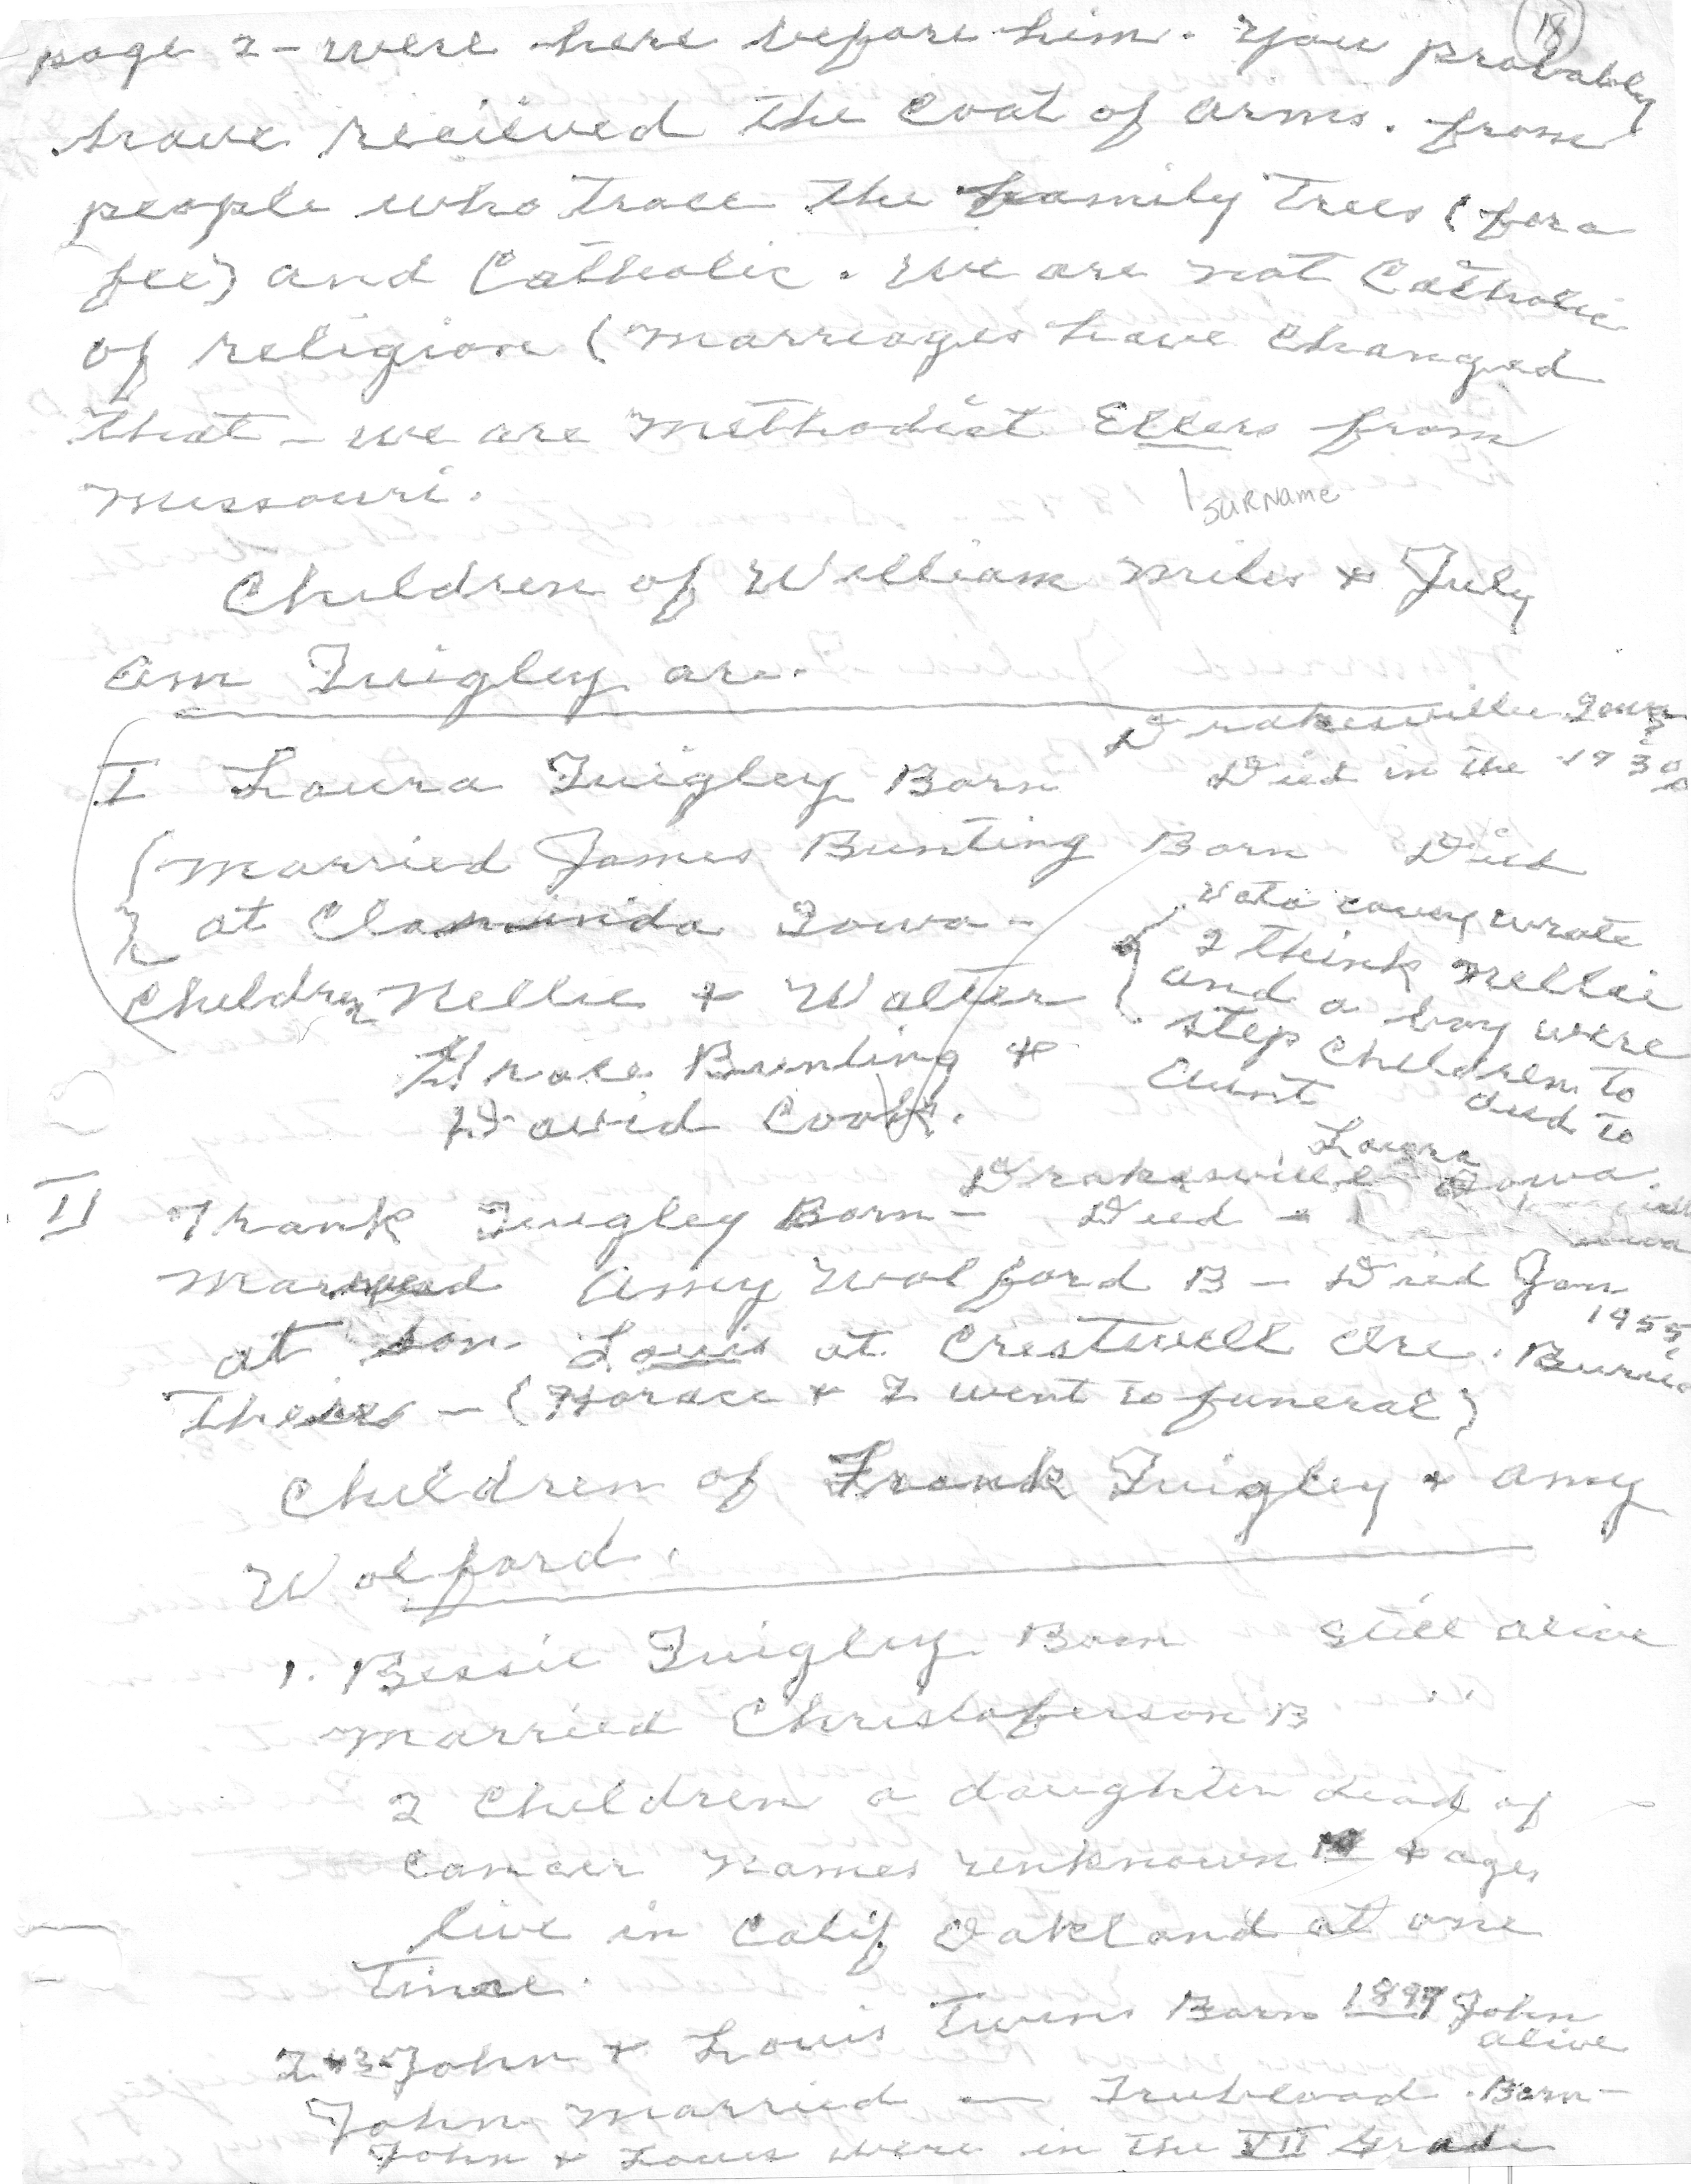 18
page 2 - were here before him. You probably
have recieved the Coat of arms. from
people who trace the family Trees (for a
fee) and Catholic. We are not Catholic
of religion (Marriages have changed
that - we are Methodist Ellers from
Missouri.
SURName
Children of William Miles + July
Ann Quigley are.
Drakesville Iowa
I Laura Quigley Born Died in the 1930s
Married James Bunting Born Died
at Clarinda Iowa -
Children Nellie + Walter
Grace Bunting +
David Cook.
wrote
I think Nellie
and a boy were
step children to
Aunt
Laura
Drakesville Iowa.
II Frank Quigley Born - Died -
Married Amy Wolford B - Died Jan
1955
at son Louis at Crestwell Ore. Buried
There - (Horace + I went to funeral)
Children of Frank Quigley + Amy
Wolford.
1. Bessie Quigley Born Still alive
Married Christoferson B " "
2 Children a daughter dead of
cancer names unknown + ages
live in Calif Oakland at one
Time.
2+3 John + Louis Twins Born 1897 John
alive
John Married — Trueblood. Born -
John + Louis were in the VII Grade